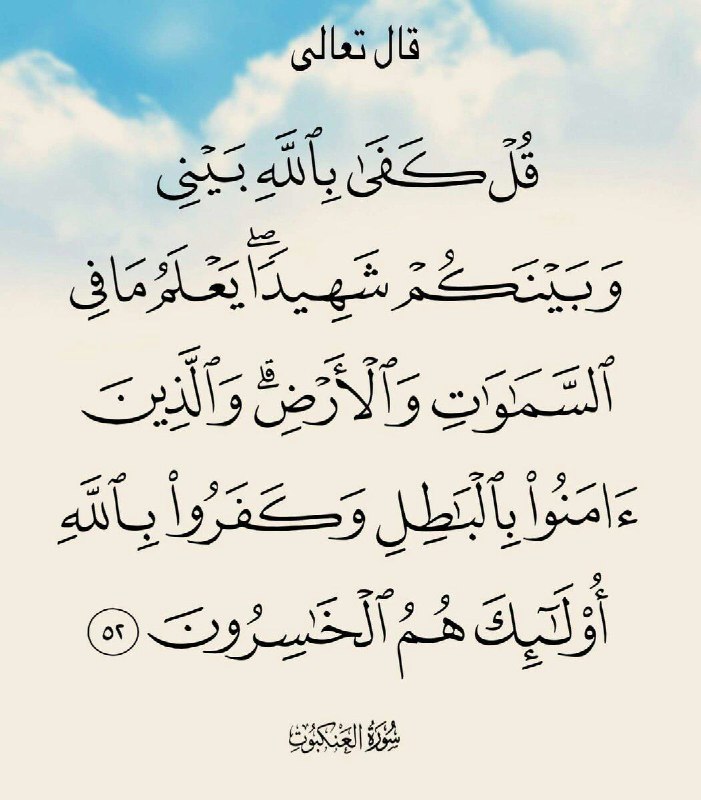 قال تعالى
قُلۡ كَفَىٰ بِٱللَّهِ بَيۡنِي
وَبَيۡنَكُمۡ شَهِيدٗاۖ يَعۡلَمُ مَا فِي
ٱلسَّمَٰوَٰتِ وَٱلۡأَرۡضِۗ وَٱلَّذِينَ
ءَامَنُواْ بِٱلۡبَٰطِلِ وَكَفَرُواْ بِٱللَّهِ
أُوْلَٰٓئِكَ هُمُ ٱلۡخَٰسِرُونَ ٥٢
سُورَةُ العَنكَبُوتِ